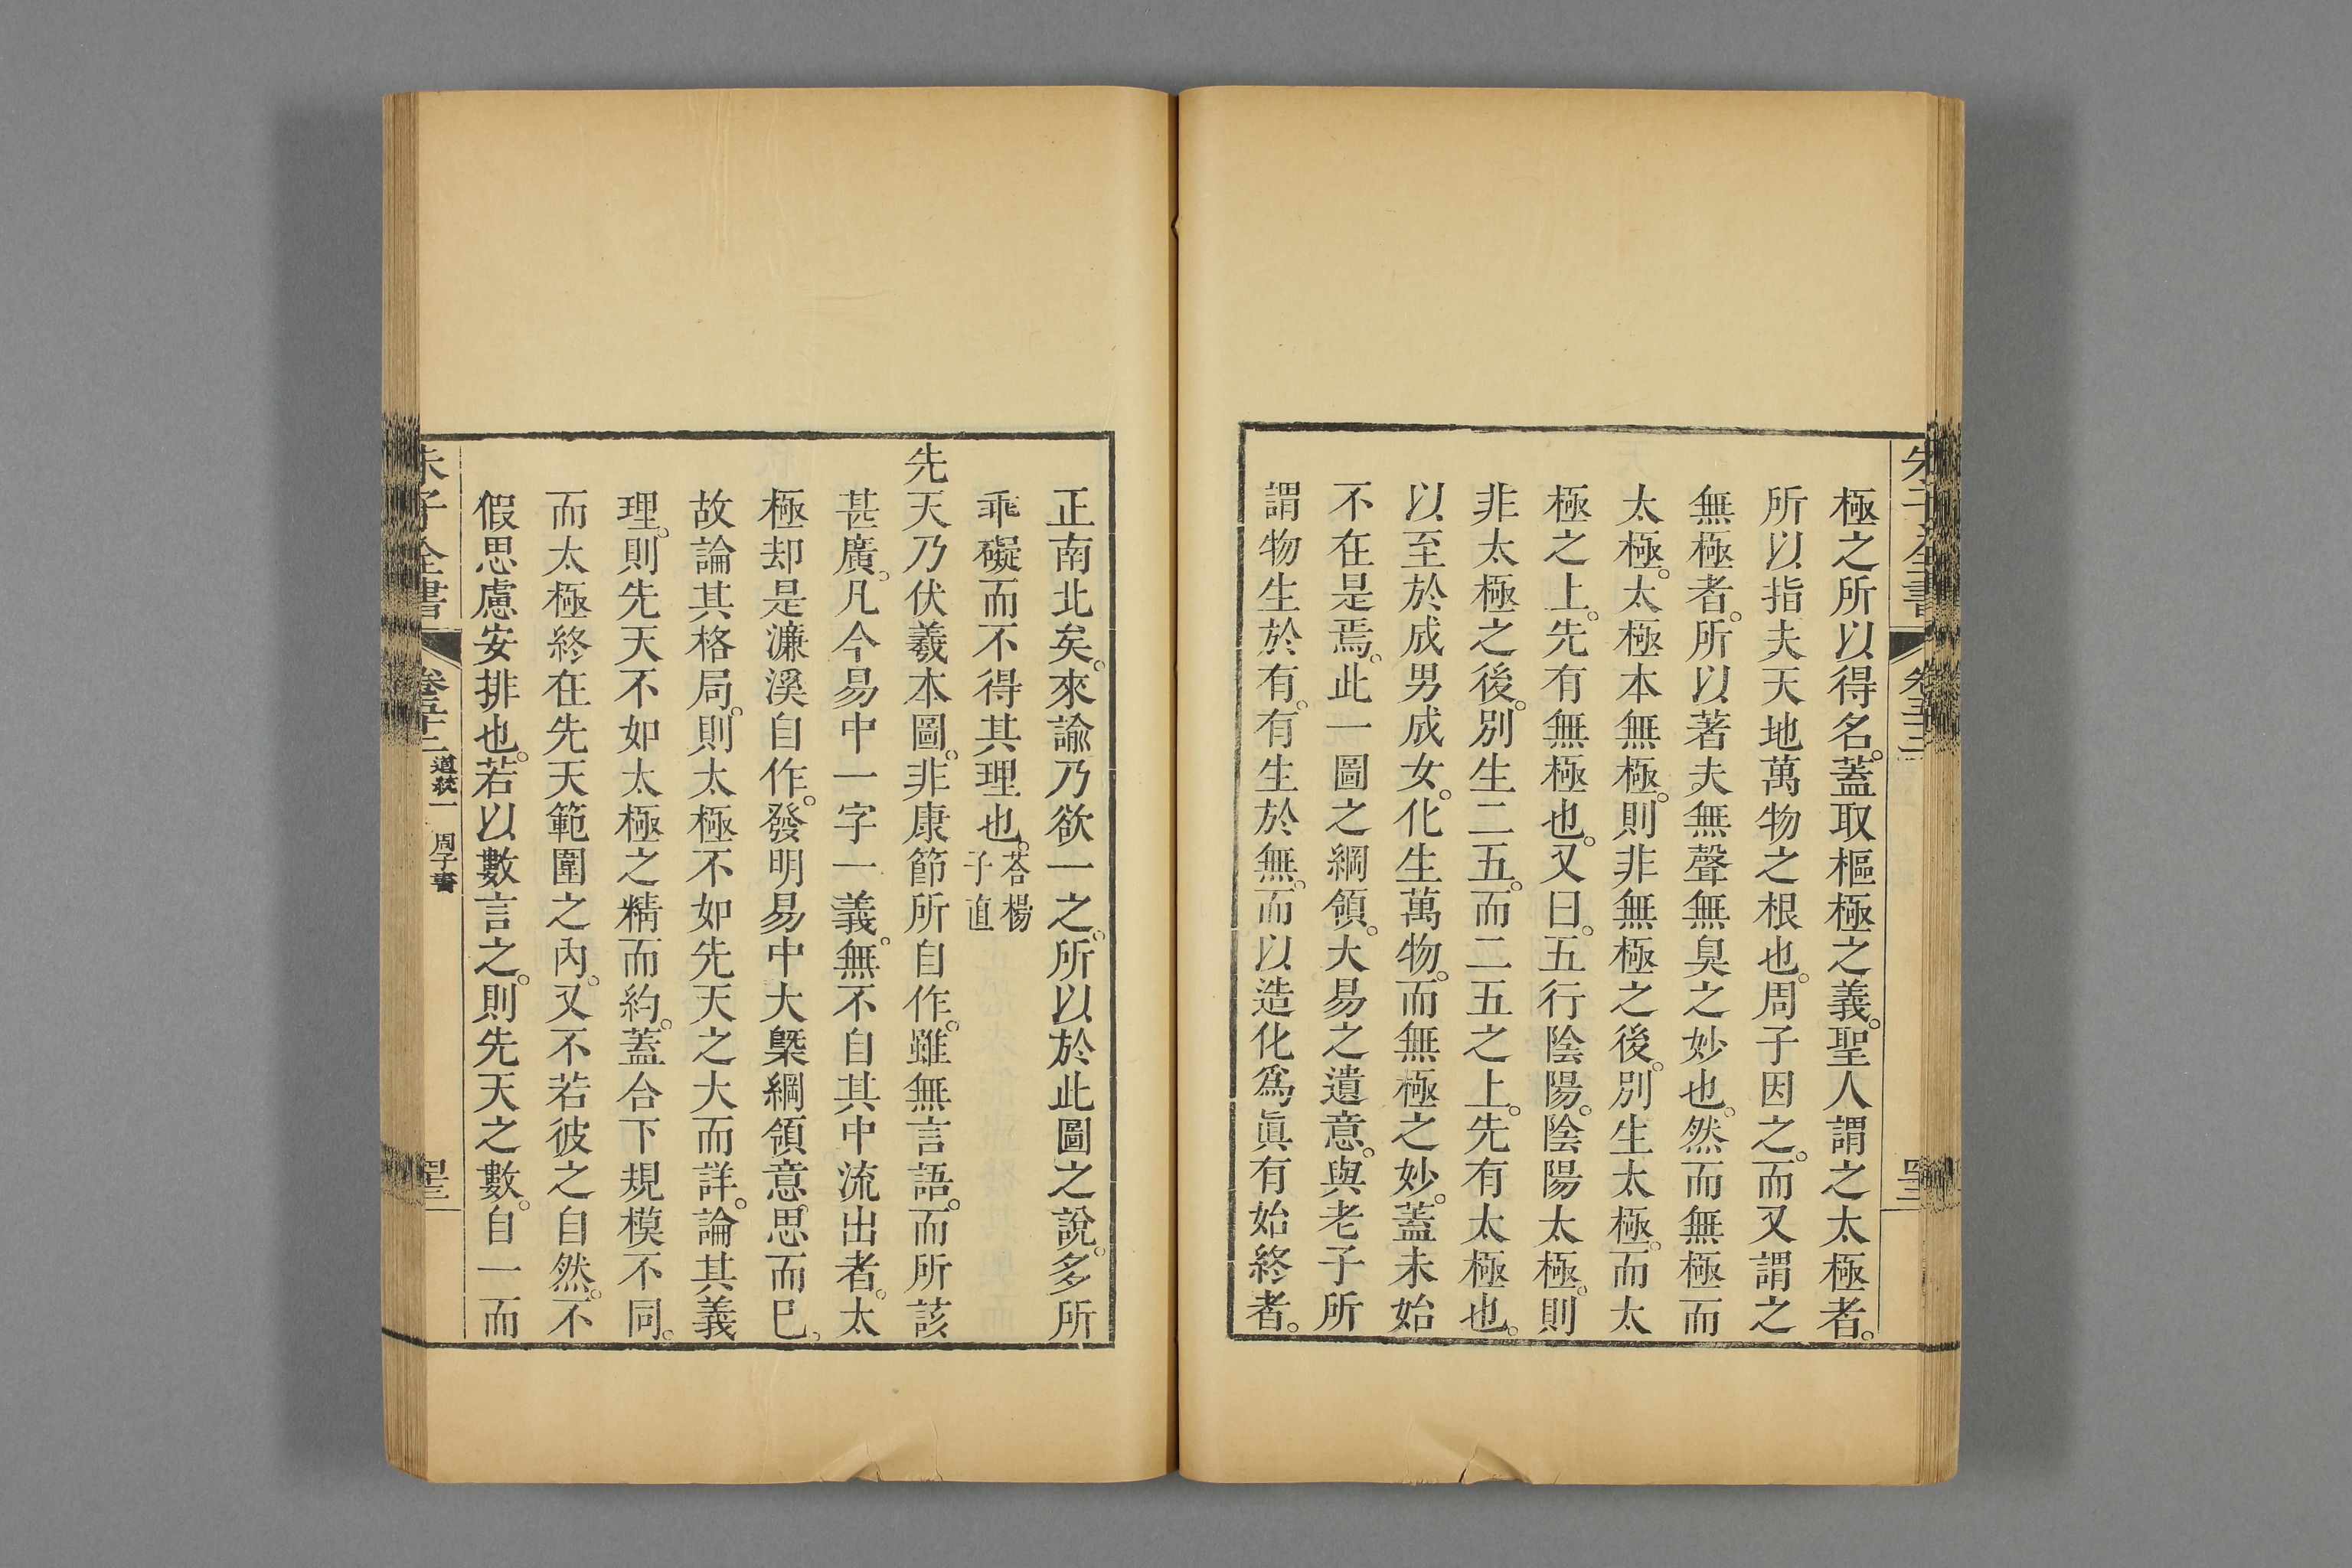 朱子全書
卷五十二
極之所以得名。蓋取樞極之義。聖人謂之太極者。
所以指夫天地萬物之根也。周子因之。而又謂之
無極者。所以著夫無聲無臭之妙也。然而無極而
太極。太極本無極。則非無極之後。別生太極。而太
極之上。先有無極也。又曰。五行陰陽。陰陽太極。則
非太極之後。別生二五。而二五之上。先有太極也。
以至於成男成女。化生萬物。而無極之妙。蓋未始
不在是焉。此一圖之綱領。大易之遺意。與老子所
謂物生於有。有生於無。而以造化爲眞有始終者。
正南北矣。來諭乃欲一之。所以於此圖之說。多所
乖礙而不得其理也。荅楊
子直
先天乃伏羲本圖。非康節所自作。雖無言語。而所該
甚廣。凡今易中一字一義。無不自其中流出者。太
極却是濂溪自作。發明易中大槩綱領意思而已。
故論其格局。則太極不如先天之大而詳。論其義
理。則先天不如太極之精而約。蓋合下規模不同。
而太極終在先天範圍之內。又不若彼之自然。不
假思慮安排也。若以數言之。則先天之數。自一而
朱子全書
卷五十二
道統一
周子書